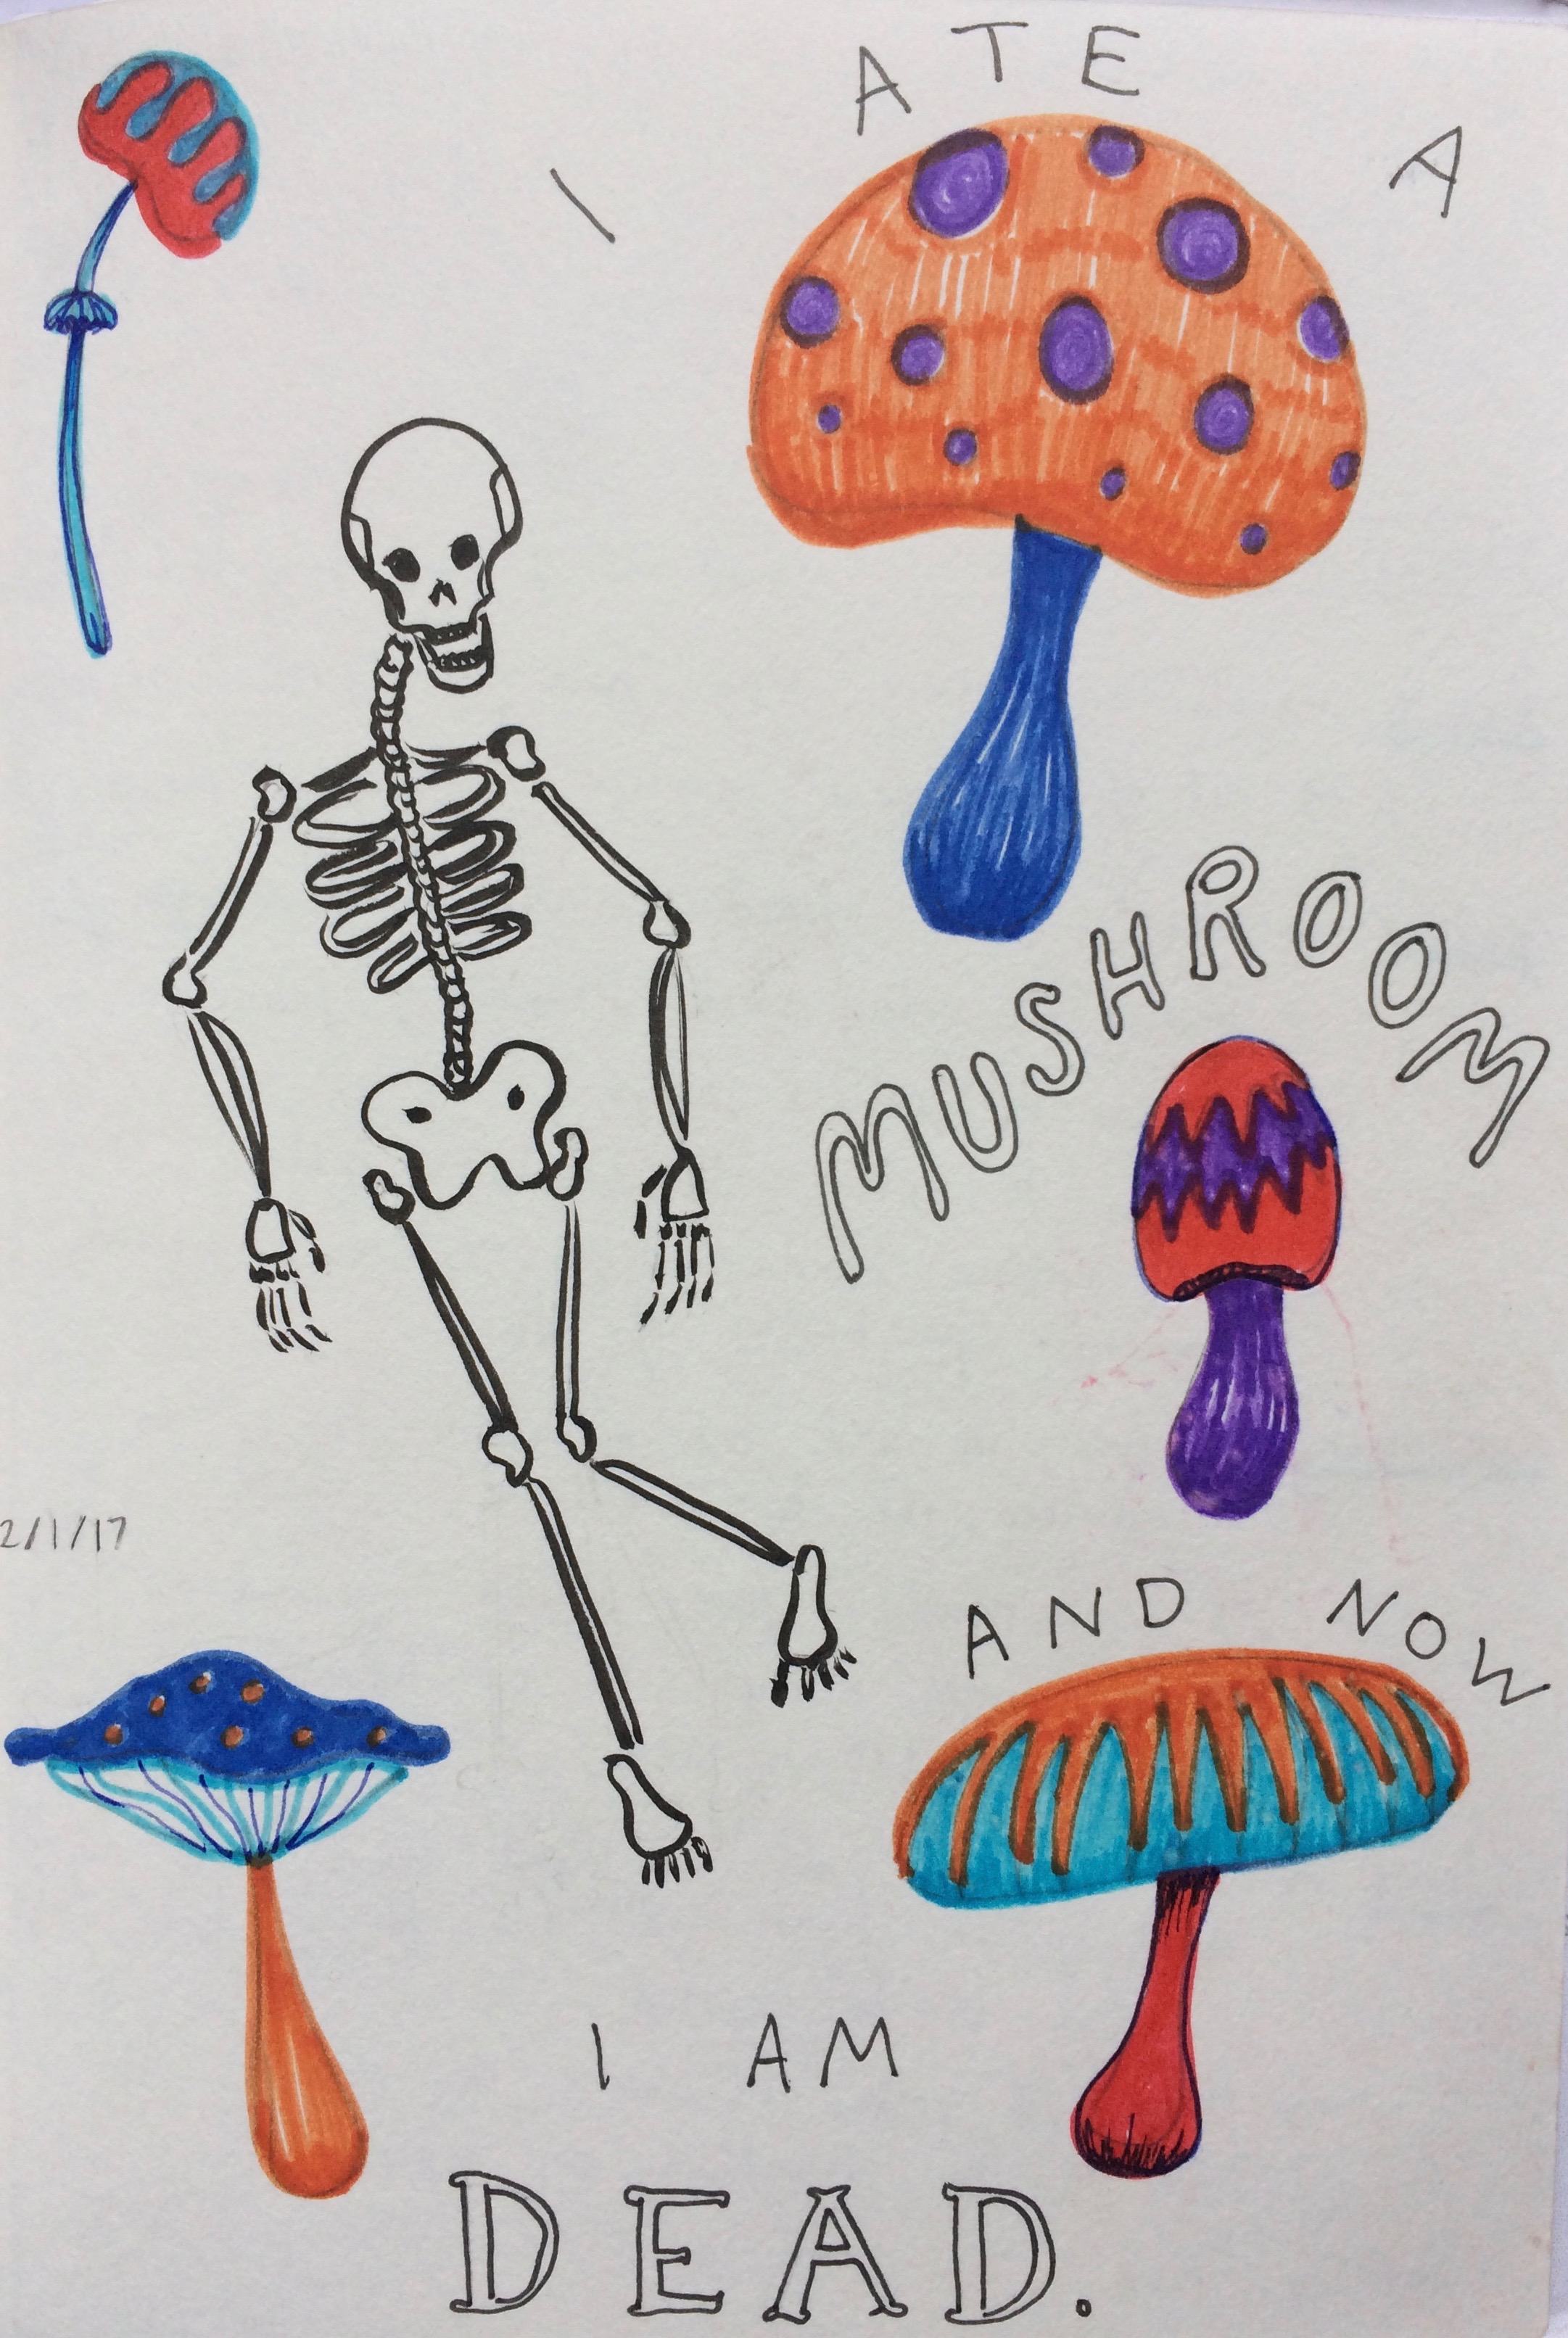 I ATE A
MUSHROOM
2/1/17
AND NOW
I AM
DEAD.